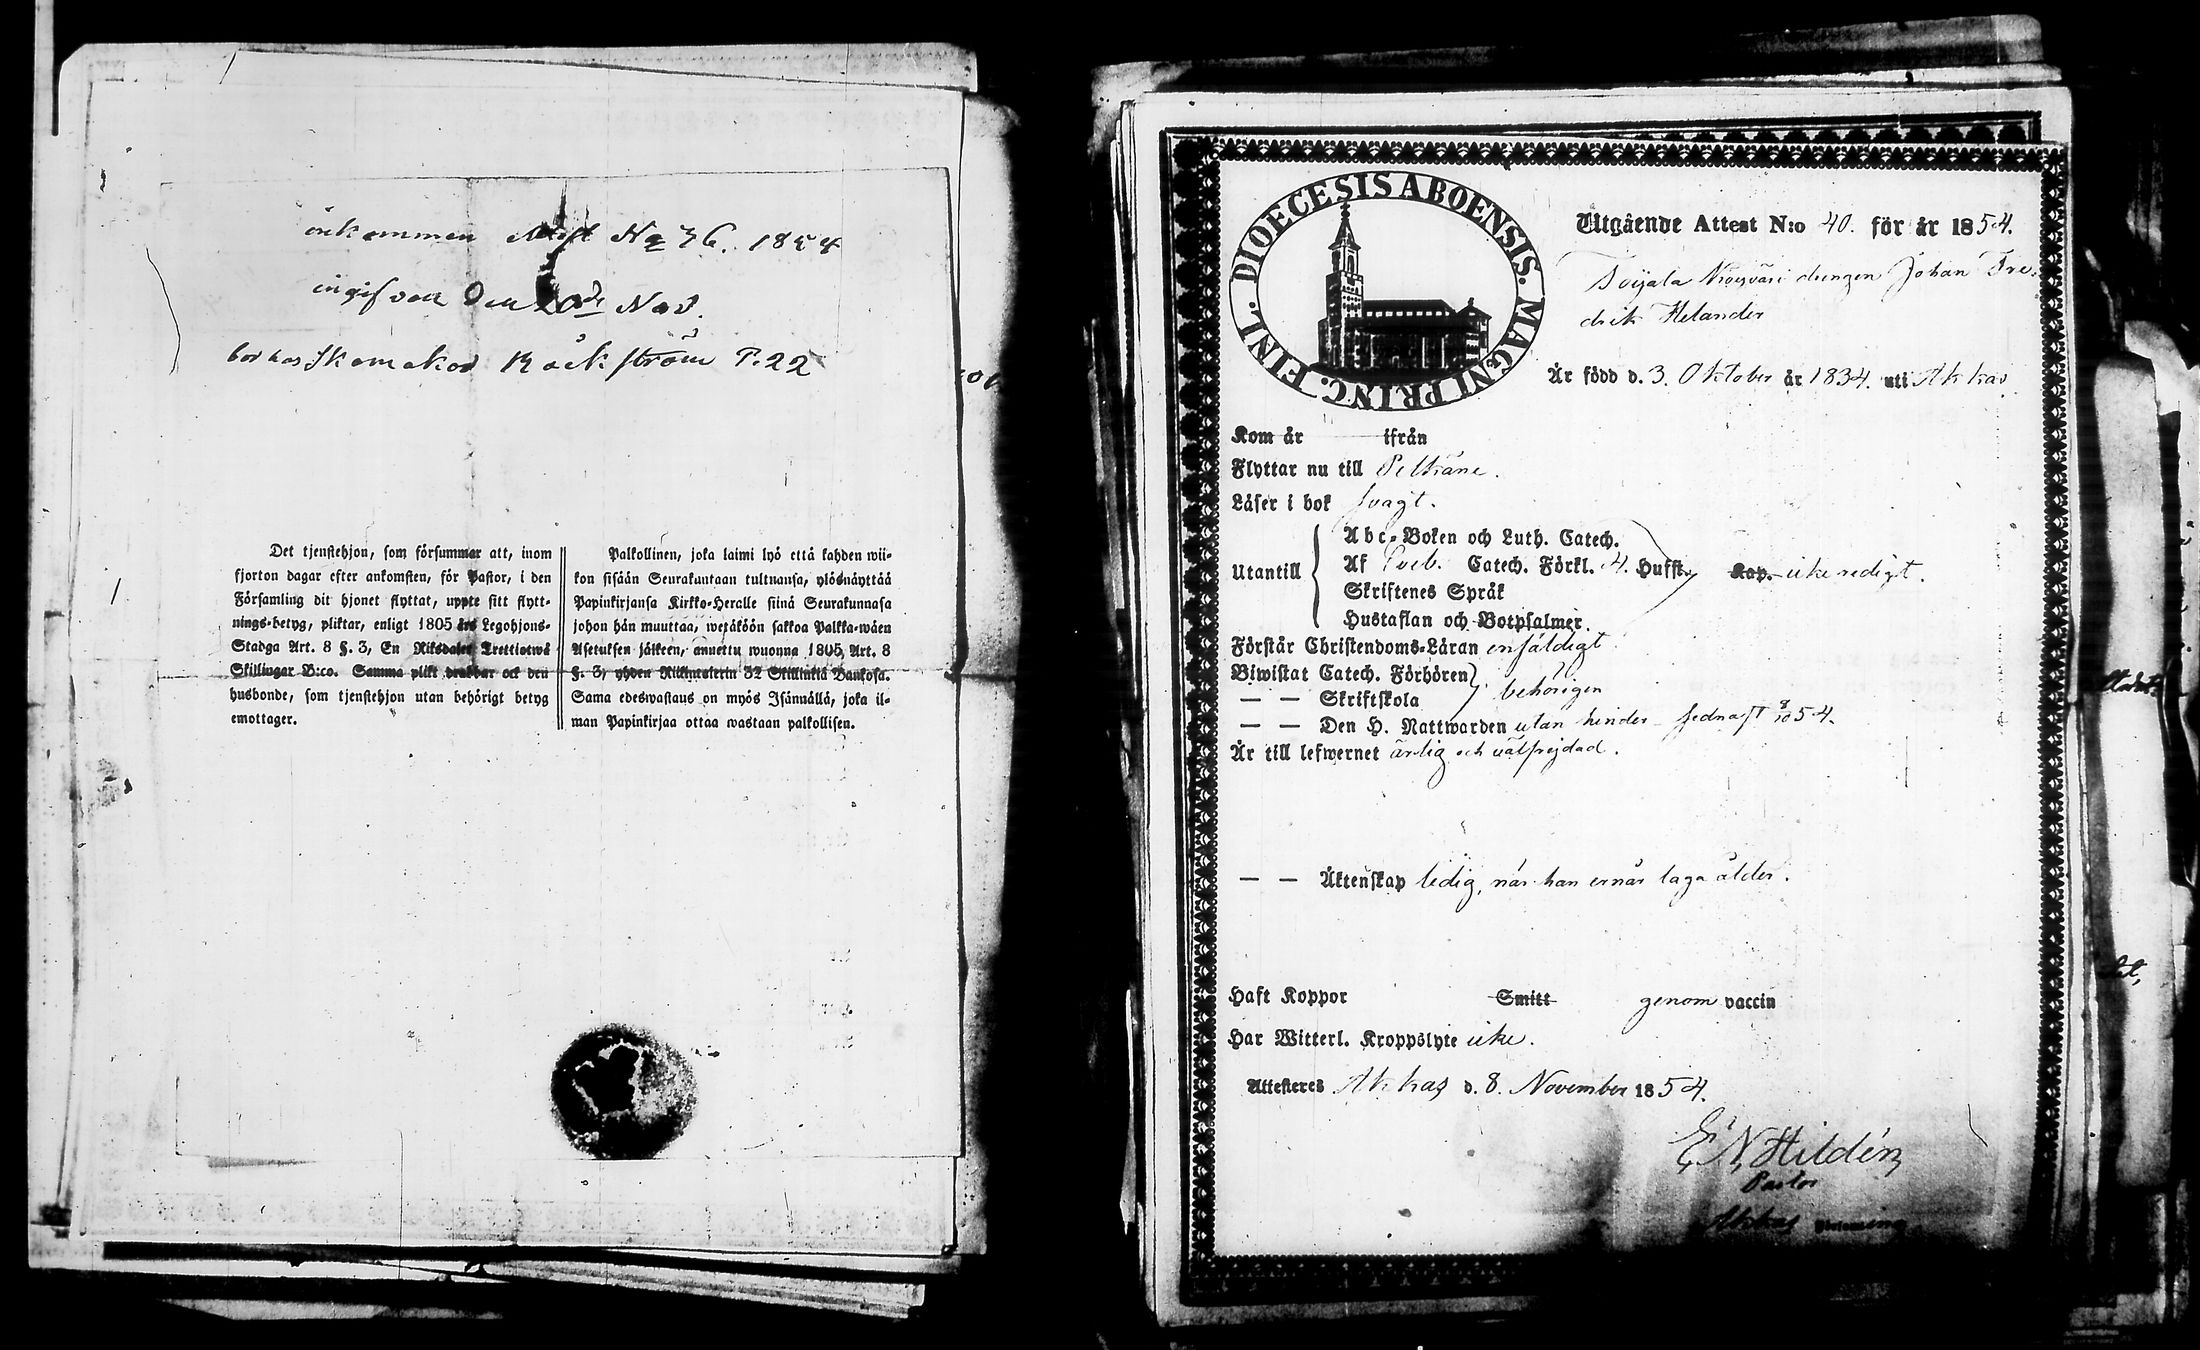 inkommen Attest No 36. 1854
ingifven den 20de Nov.
bor hos Skomakar Räckström P. 22
Det tjenstehjon, som försummar att, inom
fjorton dagar efter ankomsten, för Pastor, i den
Församling dit hjonet flyttat, uppte sitt flytt-
nings-betyg, pliktar, enligt 1805 års Legohjons-
Stadga Art. 8 §. 3, En Riksdaler Trettiotwå
Skillingar B:co. Samma plikt drabbar ock den
husbonde, som tjenstehjon utan behörigt betyg
emottager.
Palkollinen, joka laimi lyö että kahden wii-
kon sisään Seurakuntaan tultuansa, ylösnäyttää
Papinkirjansa Kirkko-Heralle siinä Seurakunnasa
johon hän muuttaa, wetäköön sakkoa Palkka-wäen
Asetuksen jälkeen, annettu wuonna 1805, Art. 8
§. 3, yhden Riikintalerin 32 Skillinkiä Bankosa.
Sama edeswastaus on myös Isännällä, joka il-
man Papinkirjaa ottaa wastaan palkollisen.
DIOECESIS ABOENSIS. MAGNI PRINC. FINL.
Utgående Attest N:o 40. för år 1854.
Toijala drengen Johan Fre-
drik Helander
Är född d. 3. Oktober år 1834. uti Akkas
Kom år ifrån
Flyttar nu till Pelkäne.
Läser i bok svagt.
Utantill
Abc-Boken och Luth. Catech.
Af Sveb. Catech. Förkl. 4. Hufst. Kap. icke redigt.
Skriftenes Språk
Hustaflan och Botpsalmer.
Förstår Christendoms-Läran enfäldigt
Biwistat Catech. Förhören
— — Skriftskola behörigen
— — Den H. Nattwarden utan hinder sednast 8/10 54.
Är till lefwernet ärlig och välfrejdad.
— — Äktenskap ledig, når han ernår laga ålder.
Haft Koppor Smitt genom vaccin
Har Witterl. Kroppslyte icke.
Attesteres Akkas d. 8. November 1854.
E. N. Hildén
Pastor
Akkas